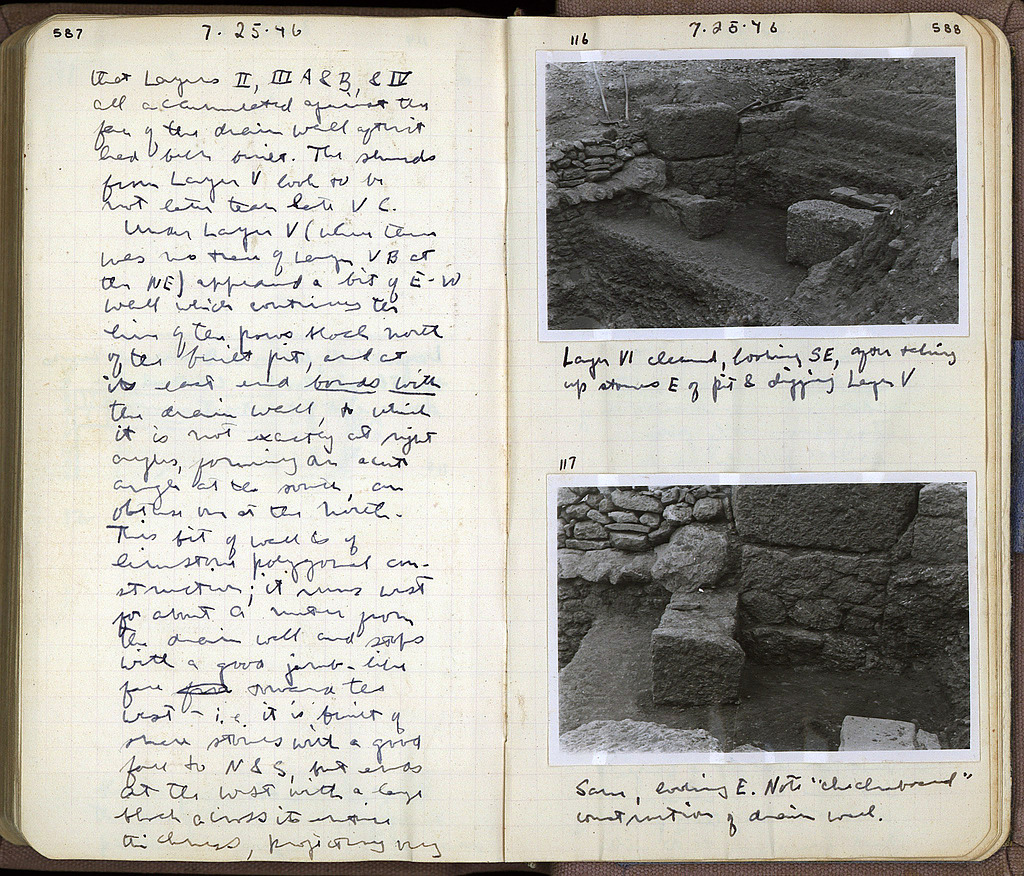 587
7.25.46
that Layers II, III A & B, & IV
all accumulated against the
face of the drain wall after it
had been built. The sherds
from Layer V look to be
not later than late V C.
Under Layer V (when there
was no trace of Layer VB at
the NE) appeared a bit of E-W
wall which continues the
line of the poros block north
of the built pit, and at
its east end bonds with
the drain wall, to which
it is not exactly at right
angles, forming an acute
angle at the south, an
obtuse one at the north.
This bit of wall is of
limestone polygonal con-
struction; it runs west
for about a meter from
the drain wall and stops
with a good jamb-like
face toward the
west - i.e. it is built of
small stones with a good
face to N & S, but ends
at the west with a large
block across its entire
thickness, projecting very
7.25.46
588
116
Layer VI cleaned, looking SE, after taking
up stones E of pit & digging Layer V
117
Same, looking E. Note "checkerboard"
construction of drain wall.